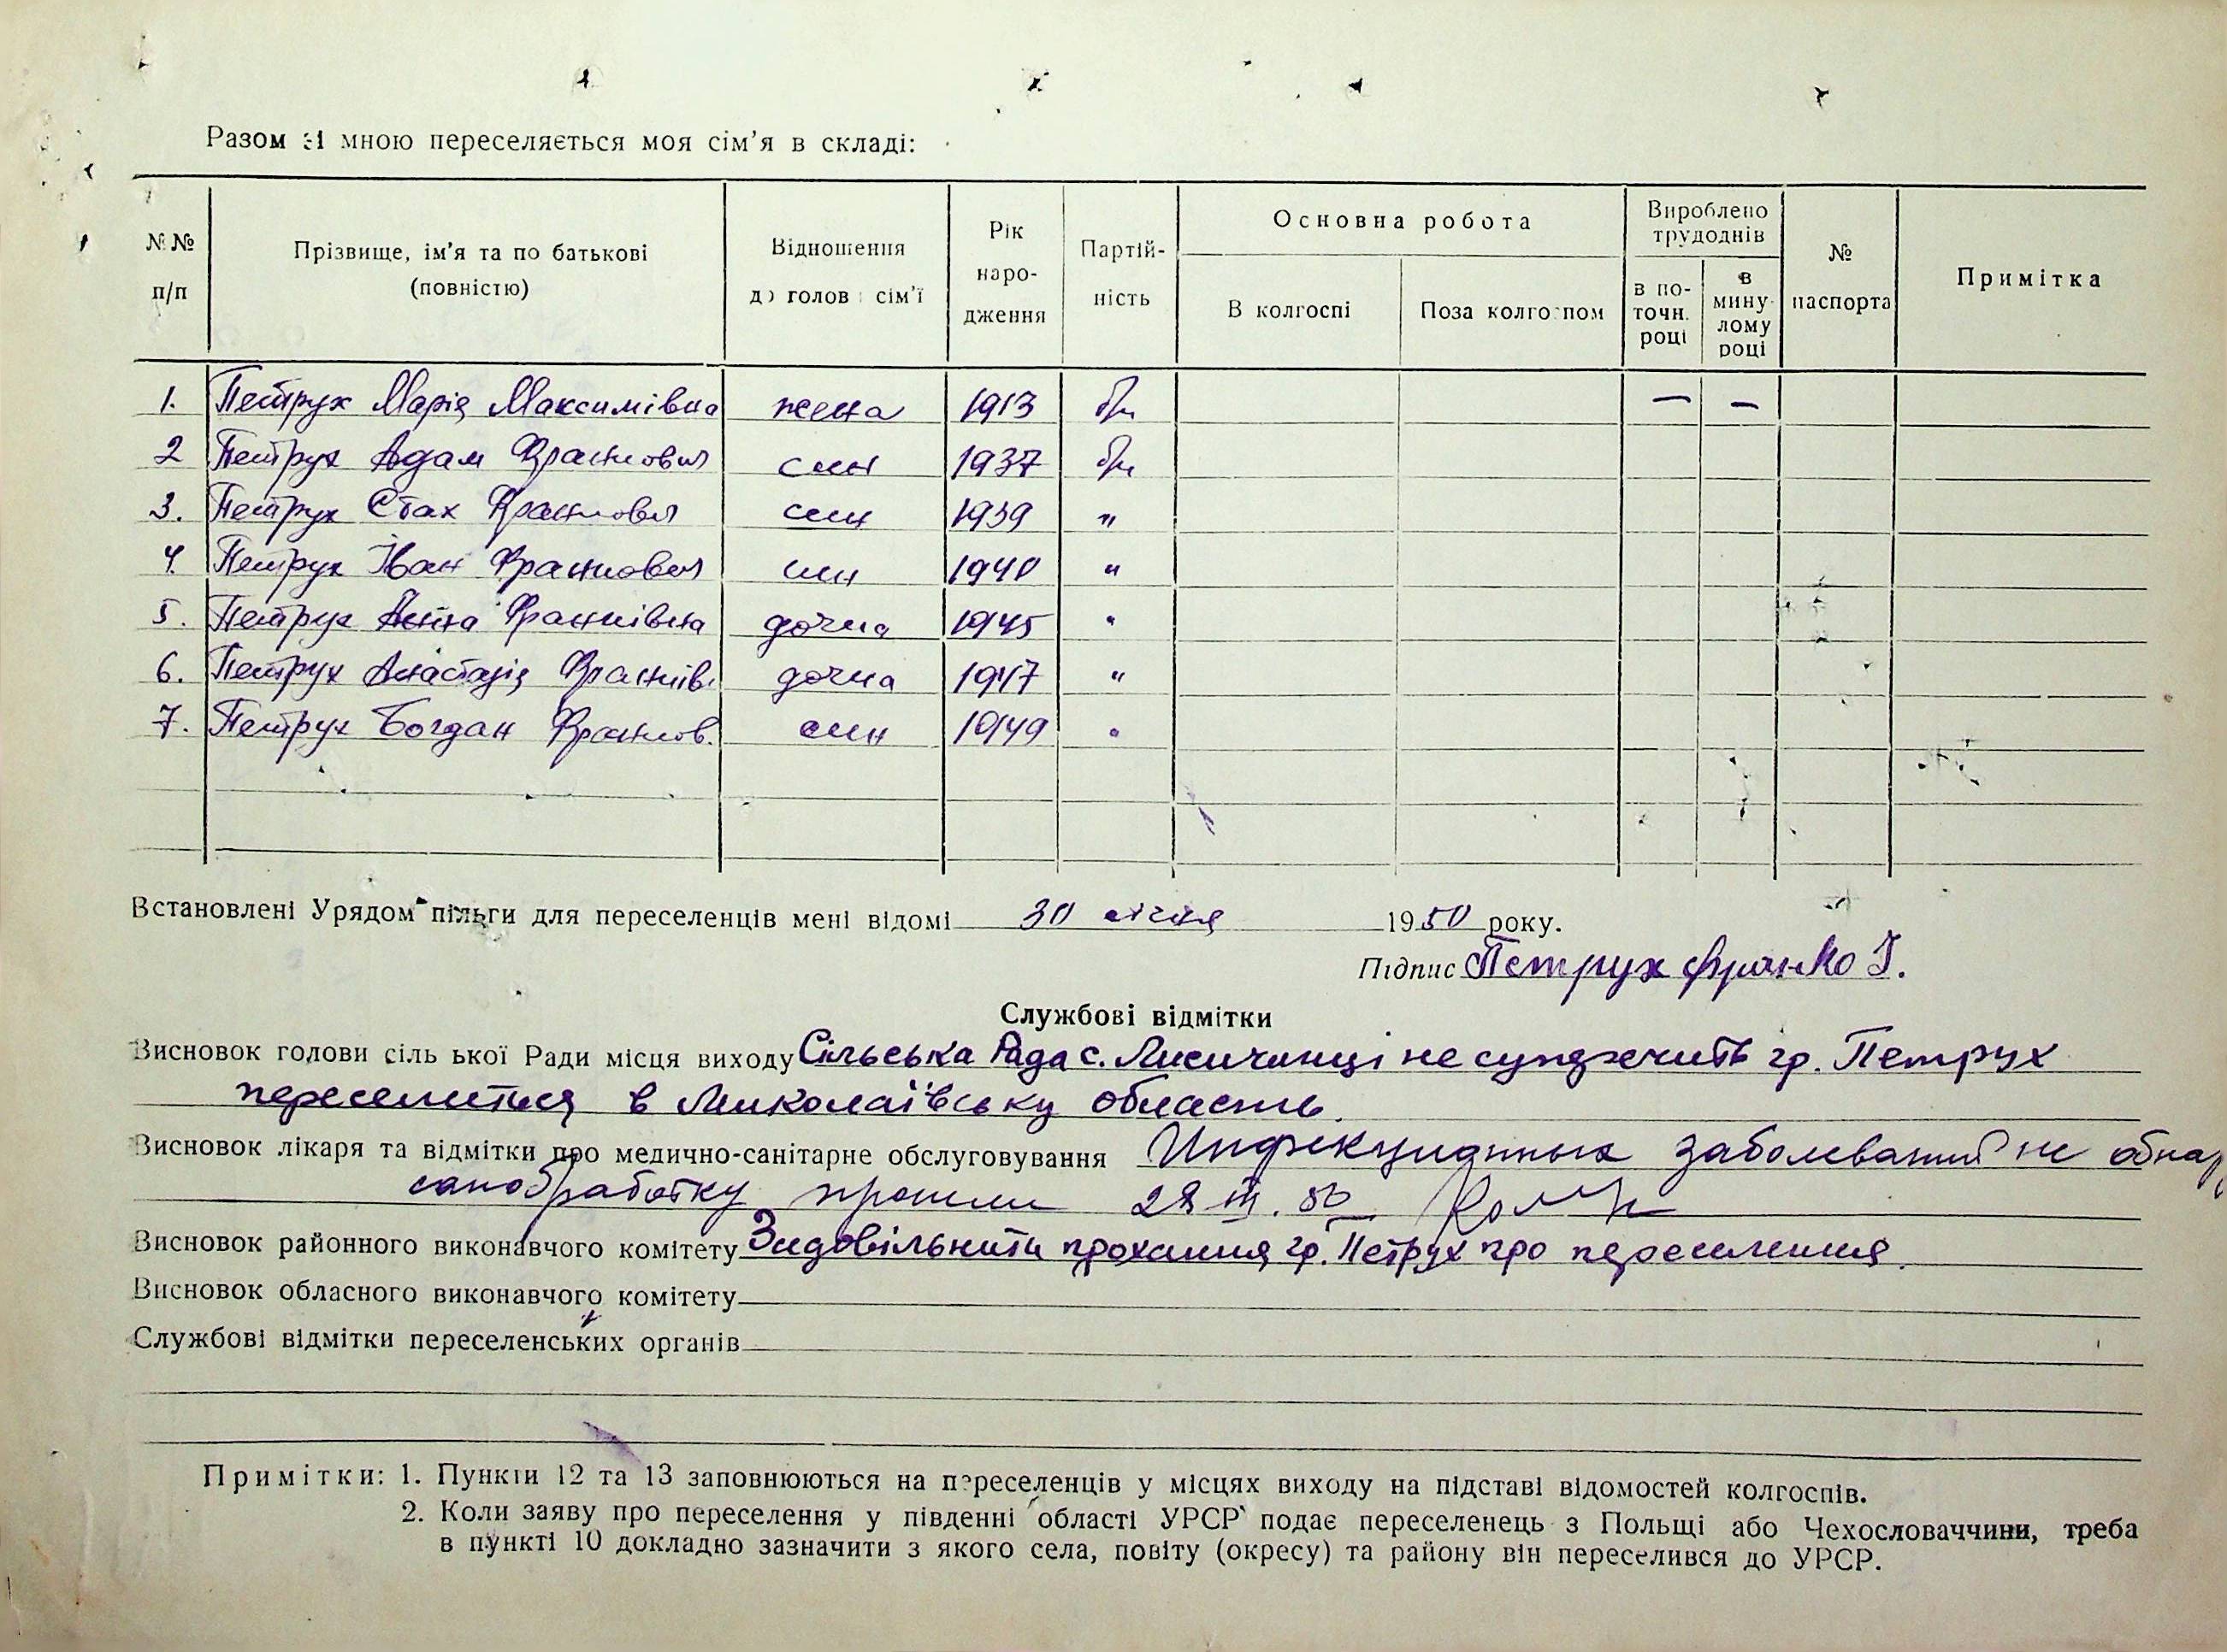 Разом зі мною переселяється моя сім'я в складі:
№№ п/п
Прізвище, ім'я та по батькові (повністю)
Відношення до голови сім'ї
Рік народження
Партійність
Основна робота
В колгоспі
Поза колгоспом
Вироблено трудоднів
в поточн. році
в минулому році
№ паспорта
Примітка
1. Петрух Марія Максимівна жена 1913 б/п — —
2 Петрух Адам Франкович син 1937 б/п
3. Петрух Стах Франкович син 1939 "
4. Петрух Іван Франкович син 1940 "
5. Петрух Анна Франківна дочка 1945 "
6. Петрух Анастазія Франків. дочка 1947 "
7. Петрух Богдан Франков. син 1949 "
Встановлені Урядом пільги для переселенців мені відомі 30 січня 1950 року.
Підпис Петрух Франко І.
Службові відмітки
Висновок голови сільської Ради місця виходу Сільська Рада с. Лисичинці не супречить гр. Петрух
переселитися в Миколаївську область.
Висновок лікаря та відмітки про медично-санітарне обслуговування Инфекционных заболеваний не обнар
санобработку прошли 28 III. 50
Висновок районного виконавчого комітету Задовільнити прохання гр. Петрух про переселення.
Висновок обласного виконавчого комітету
Службові відмітки переселенських органів
Примітки: 1. Пункти 12 та 13 заповнюються на переселенців у місцях виходу на підставі відомостей колгоспів.
2. Коли заяву про переселення у південні області УРСР подає переселенець з Польщі або Чехословаччини, треба
в пункті 10 докладно зазначити з якого села, повіту (окресу) та району він переселився до УРСР.